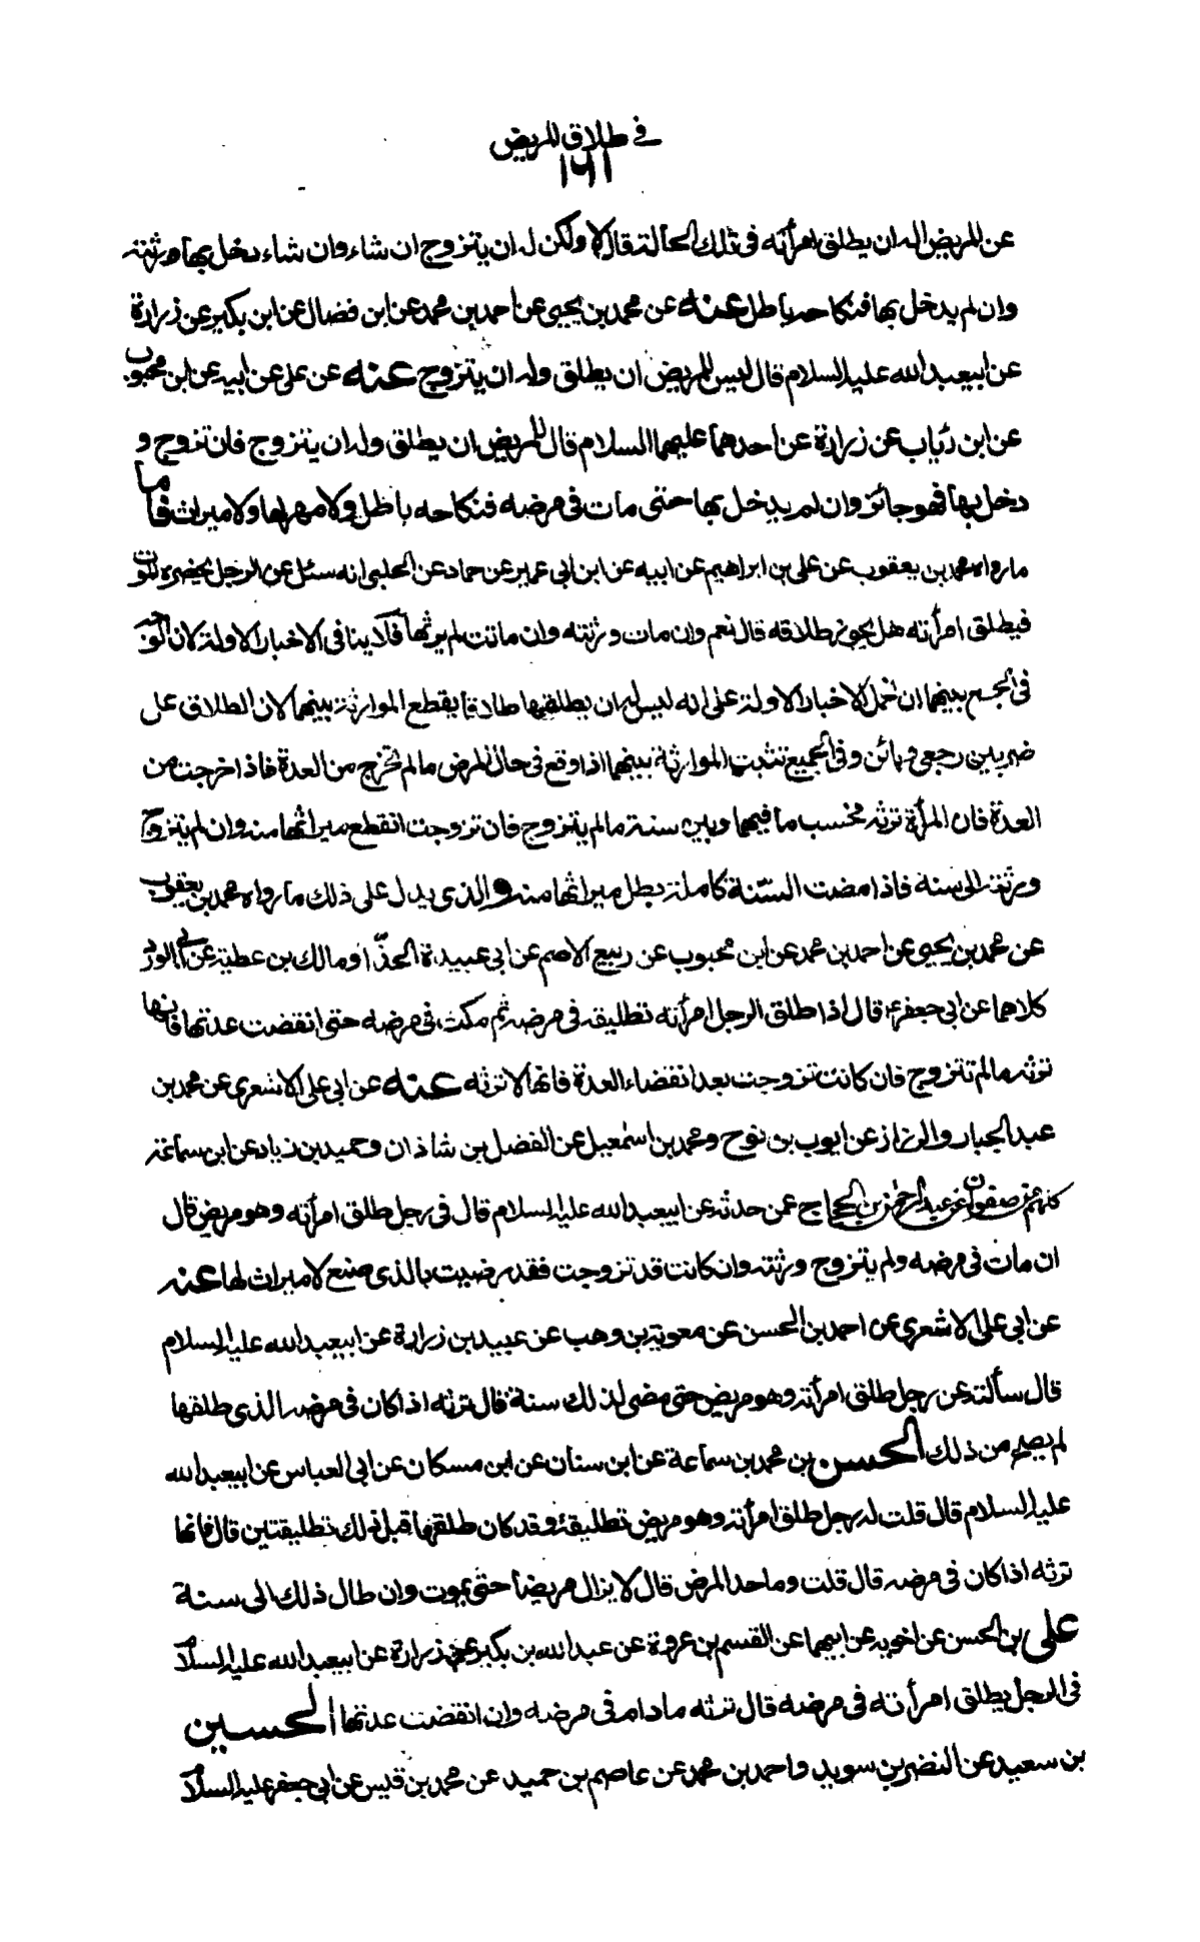 في طلاق المريض
١٦١
عن المريض اله ان يطلق امرأته في تلك الحالة قال لا ولكن له ان يتزوج ان شاء وان شاء دخل بها ورثته
وان لم يدخل بها فنكاحه باطل عنه عن محمد بن يحيى عن احمد بن محمد عن ابن فضال عن ابن بكير عن زرارة
عن ابيعبد الله عليه السلام قال ليس للمريض ان يطلق وله ان يتزوج عنه عن علي عن ابيه عن ابن محبوب
عن ابن رئاب عن زرارة عن احدهما عليهما السلام قال للمريض ان يطلق وله ان يتزوج فان تزوج و
دخل بها فهو جائز وان لم يدخل بها حتى مات في مرضه فنكاحه باطل ولا مهر لها ولا ميراث فاما
ما رواه محمد بن يعقوب عن علي بن ابراهيم عن ابيه عن ابن ابي عمير عن حماد عن الحلبي انه سئل عن الرجل يحضره الموت
فيطلق امرأته هل يجوز طلاقه قال نعم وان مات ورثته وان ماتت لم يرثها فلا ينافي الاخبار الاولة لان الوجه
في الجمع بينهما ان نحمل الاخبار الاولة على انه ليس له ان يطلقها طلاقا يقطع الموارثة بينهما لان الطلاق على
ضربين رجعي وبائن وفي الجميع تثبت الموارثة بينهما اذا وقع في حال المرض ما لم تخرج من العدة فاذا خرجت من
العدة فان المرأة ترثه بحسب ما فيهما وبين سنة ما لم يتزوج فان تزوجت انقطع ميراثها منه وان لم يتزوج
ورثته الى سنة فاذا مضت السنة كاملة بطل ميراثها منه والذي يدل على ذلك ما رواه محمد بن يعقوب
عن محمد بن يحيى عن احمد بن محمد عن ابن محبوب عن ربيع الاصم عن ابي عبيدة الحذاء ومالك بن عطية عن ابي الورد
كلاهما عن ابي جعفر ع قال اذا طلق الرجل امرأته تطليقة في مرضه ثم مكث في مرضه حتى انقضت عدتها فانها
ترثه ما لم تتزوج فان كانت تزوجت بعد انقضاء العدة فانها لا ترثه عنه عن ابي علي الاشعري عن محمد بن
عبد الجبار والرزاز عن ايوب بن نوح ومحمد بن اسمعيل عن الفضل بن شاذان وحميد بن زياد عن ابن سماعة
كلهم عن صفوان عن عبد الرحمن بن الحجاج عمن حدثه عن ابيعبد الله عليه السلام قال في رجل طلق امرأته وهو مريض قال
ان مات في مرضه ولم يتزوج ورثته وان كانت قد تزوجت فقد رضيت بالذي صنع لا ميراث لها عنه
عن ابي علي الاشعري عن احمد بن الحسن عن معوية بن وهب عن عبيد بن زرارة عن ابيعبد الله عليه السلام
قال سألته عن رجل طلق امرأته وهو مريض حتى مضى لذلك سنة قال ترثه اذا كان في مرضه الذي طلقها
لم يصح من ذلك الحسن بن محمد بن سماعة عن ابن سنان عن ابن مسكان عن ابي العباس عن ابيعبد الله
عليه السلام قال قلت له رجل طلق امرأته وهو مريض تطليقة وقد كان طلقها قبل ذلك تطليقتين قال فانها
ترثه اذا كان في مرضه قال قلت وما حد المرض قال لا يزال مريضا حتى يموت وان طال ذلك الى سنة
علي بن الحسن عن اخويه عن ابيهما عن القسم بن عروة عن عبد الله بن بكير عن زرارة عن ابيعبد الله عليه السلام
في الرجل يطلق امرأته في مرضه قال ترثه ما دام في مرضه وان انقضت عدتها الحسين
بن سعيد عن النضر بن سويد واحمد بن محمد عن عاصم بن حميد عن محمد بن قيس عن ابي جعفر عليه السلام